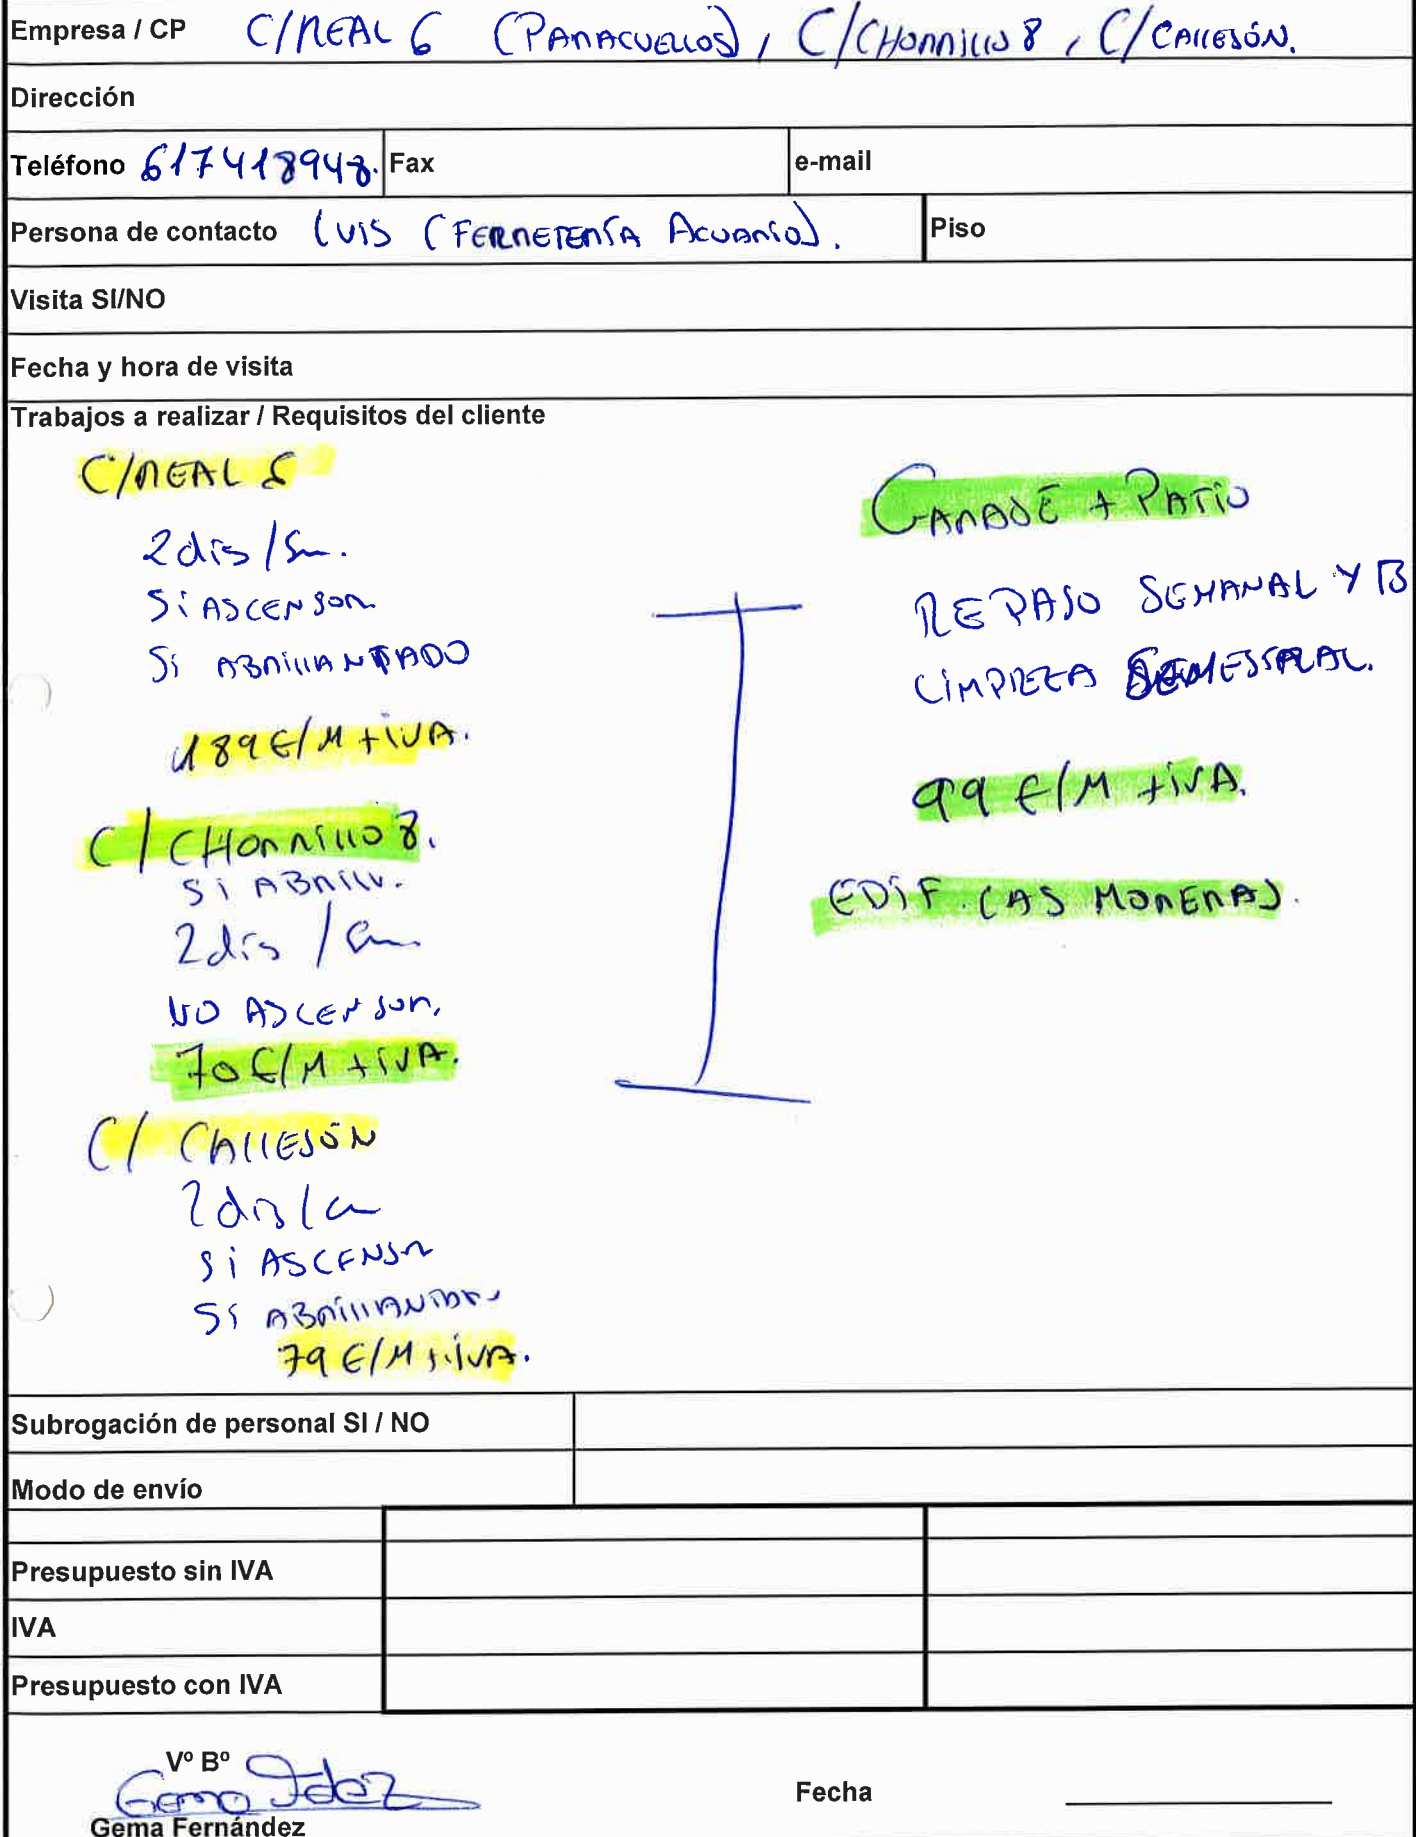 Empresa / CP C/REAL 6 (PARACUELLOS), C/CHORRILLO 8, C/CALLEJÓN.
Dirección
Teléfono 617418948. Fax e-mail
Persona de contacto LUIS (FERRETERÍA ACUARIO). Piso
Visita SI/NO
Fecha y hora de visita
Trabajos a realizar / Requisitos del cliente
C/REAL 6
2 dís/Sm.
Sí ASCENSOR
Sí ABRILLANTADO
189 €/M + IVA.
C/CHORRILLO 8.
Sí ABRILL.
2 dís /
NO ASCENSOR.
70 €/M + IVA.
C/ CALLEJÓN
2 dís/
Sí ASCENSOR
Sí ABRILLANTADO
79 €/M + IVA.
GARAJE + PATIO
REPASO SEMANAL Y
LIMPIEZA SEMESTRAL.
99 €/M + IVA.
EDIF. LAS MORERAS.
Subrogación de personal SI / NO
Modo de envío
Presupuesto sin IVA
IVA
Presupuesto con IVA
Vº Bº
Gema Fdez
Gema Fernández
Fecha